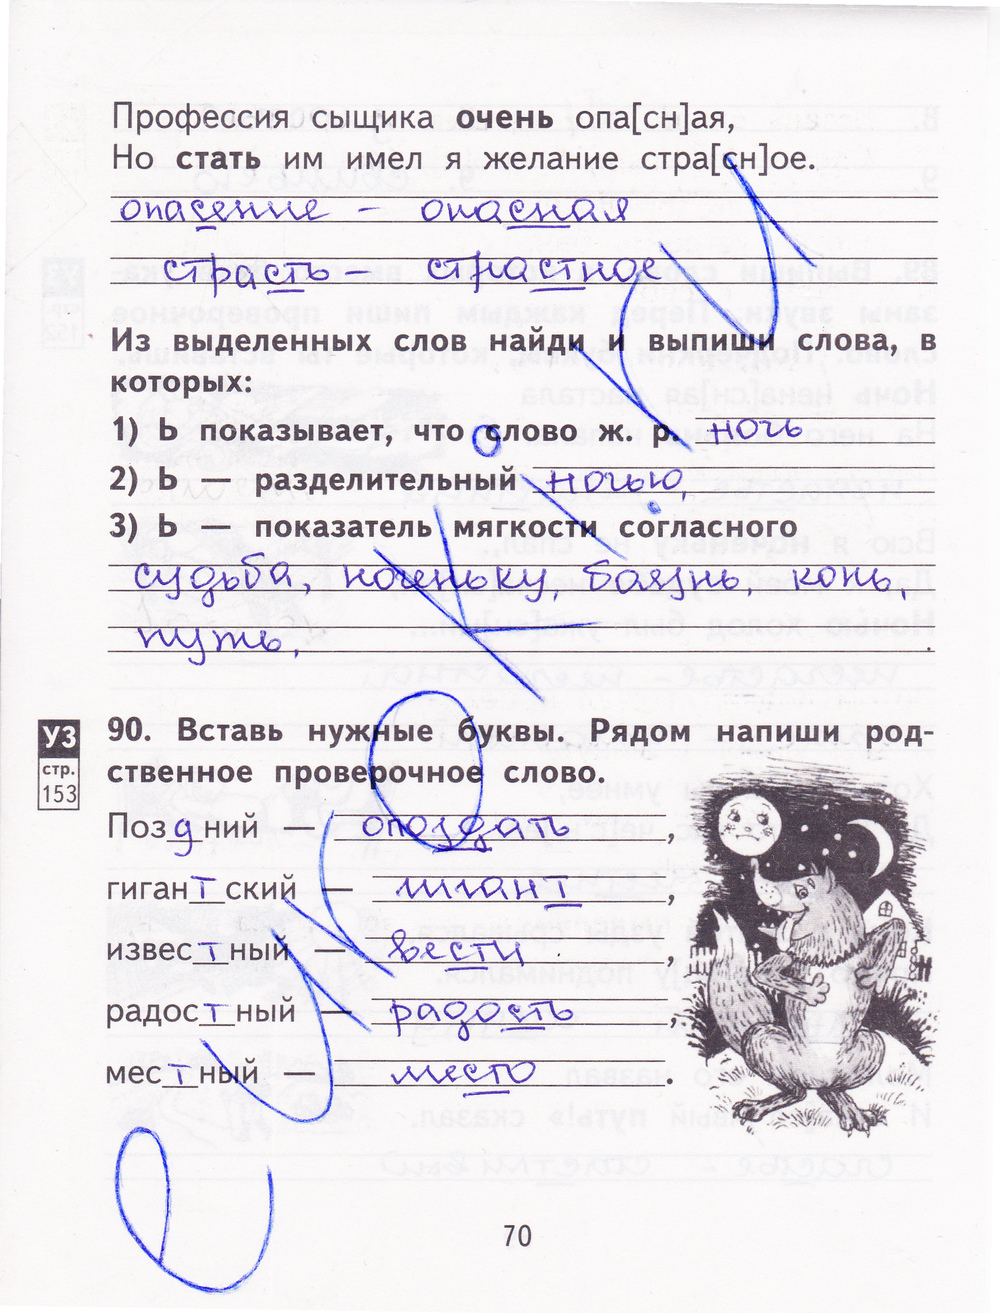 Профессия сыщика очень опа[сн]ая,
Но стать им имел я желание стра[сн]ое.
опасение – опасная
страсть – страстное
Из выделенных слов найди и выпиши слова, в
которых:
1) Ь показывает, что слово ж. р. ночь
2) Ь – разделительный ночью,
3) Ь — показатель мягкости согласного
судьба, ноченьку, боязнь, конь,
путь.
УЗ
стр.
153
90. Вставь нужные буквы. Рядом напиши род-
ственное проверочное слово.
Поздний – опоздать,
гигантский — гигант,
известный — вести,
радостный — радость,
местный — место.
70